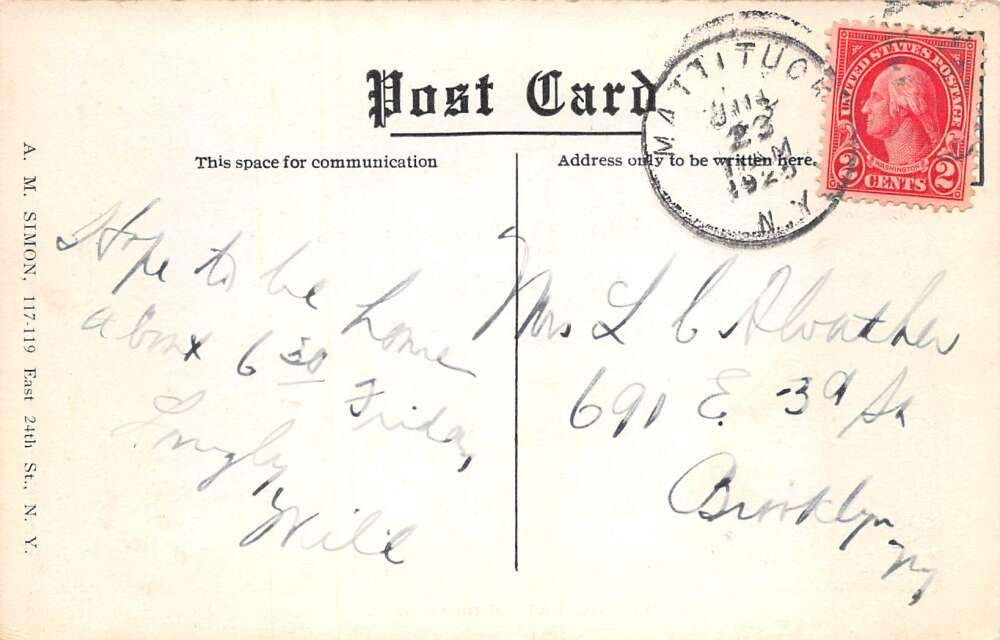 Post Card
This space for communication
Address only to be written here.
MATTITUCK
23
1925
N.Y.
UNITED STATES POSTAGE
WASHINGTON
2 CENTS 2
A. M. SIMON, 117-119 East 24th St., N. Y.
Hope to be home
about 6 30 Friday,
Will
Mrs L C
691 E. 39 St
Brooklyn
NY